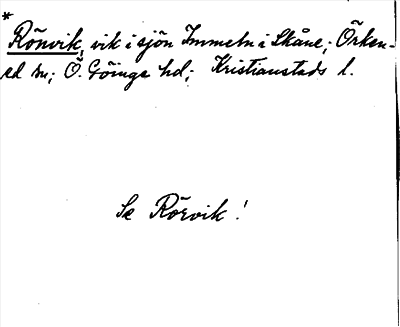 *
Rönvik, vik i sjön Immeln i Skåne; Örken-
ed sn; Ö. Göinge hd; Kristianstads l.
Se Rörvik!